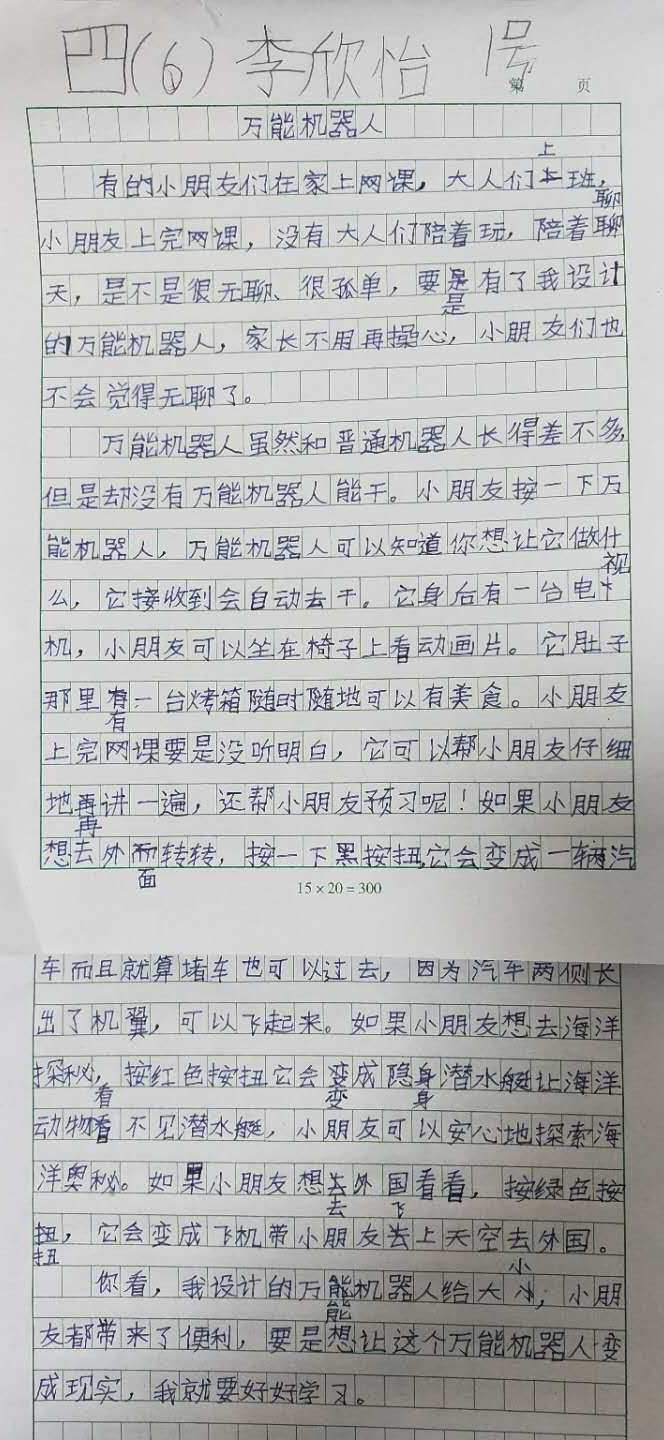 四(6)李欣怡 1号
第 页
万能机器人
有的小朋友们在家上网课，大人们上班，
小朋友上完网课，没有大人们陪着玩，陪着聊
天，是不是很无聊、很孤单，要是有了我设计
的万能机器人，家长不用再操心，小朋友们也
不会觉得无聊了。
万能机器人虽然和普通机器人长得差不多，
但是却没有万能机器人能干。小朋友按一下万
能机器人，万能机器人可以知道你想让它做什
么，它接收到会自动去干。它身后有一台电视
机，小朋友可以坐在椅子上看动画片。它肚子
那里有一台烤箱随时随地可以有美食。小朋友
上完网课要是没听明白，它可以帮小朋友仔细
地再讲一遍，还帮小朋友预习呢！如果小朋友
想去外面转转，按一下黑按扭，它会变成一辆汽
15×20=300
车而且就算堵车也可以过去，因为汽车两侧长
出了机翼，可以飞起来。如果小朋友想去海洋
探秘，按红色按扭它会变成隐身潜水艇让海洋
动物看不见潜水艇，小朋友可以安心地探索海
洋奥秘。如果小朋友想去外国看看，按绿色按
扭，它会变成飞机带小朋友飞上天空去外国。
你看，我设计的万能机器人给大小，小朋
友都带来了便利，要是想让这个万能机器人变
成现实，我就要好好学习。